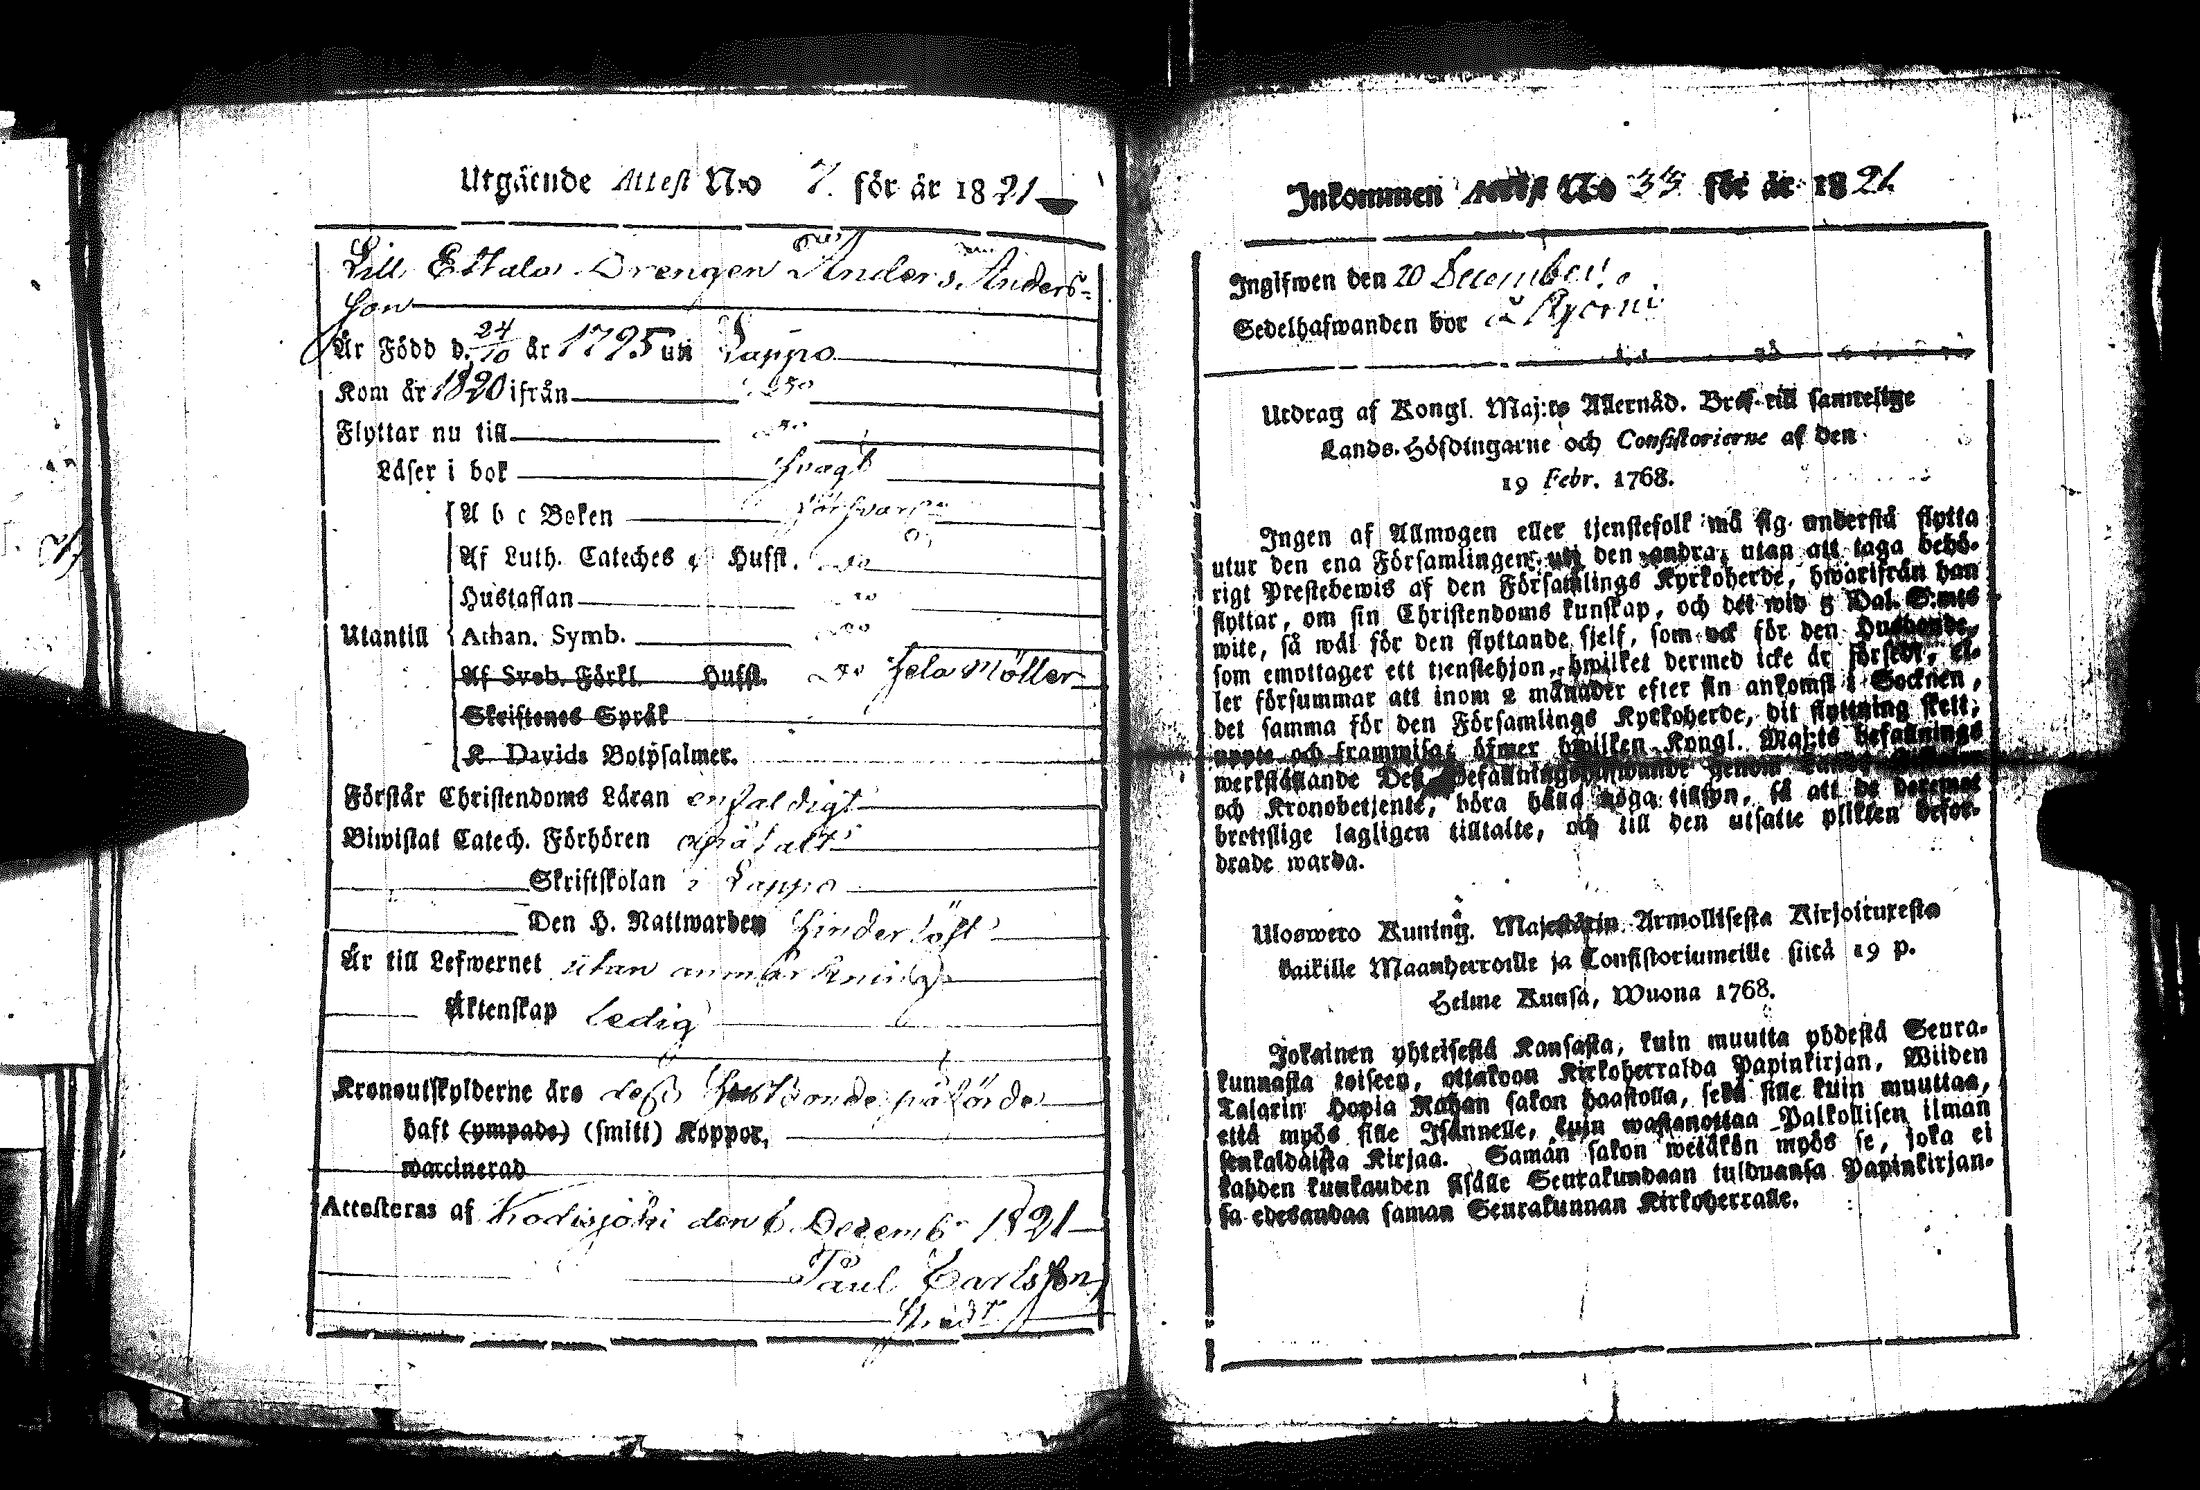 Utgående Attest N:o 7. för år 1821
Lill Ettala Drengen Anders Anders-
son
Är Född d. 24/10 år 1795 uti Lappo
Kom år 1820 ifrån do
Flyttar nu till do
Läser i bok svagt
A b c Boken försvarl.
Af Luth. Cateches Hufst. do
Hustaflan do
Utantill Athan. Symb. do
Af Sveb. Förkl. Hufst. do hela Möller
Skriftenes Språk
K. Davids Botpsalmer.
Förstår Christendoms Läran enfaldigt
Biwistat Catech. Förhören
Skriftskolan i Lappo
Den H. Nattwarden hinderlöst
Är till Lefwernet utan anmärkning
Äktenskap ledig
Kronoutskylderne äro dess Husbonde påförde
haft (ympade) (smitt) Koppor,
waccinerad
Attesteras af Kodisjoki den 6 Decemb 1821
Paul Carlsson
Inkommen Attest No 33 för år 1821
Ingifwen den 20 December
Sedelhafwanden bor å
Utdrag af Kongl. Maj:ts Allernåd. Bref till samtelige
Lands-Höfdingarne och Consistorierne af den
19 Febr. 1768.
Ingen af Allmogen eller tjenstefolk må sig understå flytta
utur den ena Församlingen uti den andra, utan att taga behö-
rigt Prestebewis af den Församlings Kyrkoherde, hwarifrån han
flyttar, om sin Christendoms kunskap, och det wid 5 Dal. S:mts
wite, så wäl för den flyttande sjelf, som ock för den Husbonde,
som emottager ett tjenstehjon, hwilket dermed icke är försedt, el-
ler försummar att inom 2 månader efter sin ankomst i Socknen,
det samma för den Församlings Kyrkoherde, dit flyttning skett,
uppte och frammisa; öfwer hwilken Kongl. Maj:ts befallnings
werkställande Des Befallningshafwande genom Lands
och Kronobetjente, böra hålla noga tillsyn, så att de deremot
brottslige lagligen tilltalte, och till den utsatte plikten befor-
drade warda.
Uloswero Kuning. Majestätin Armollisesta Kirjoituxesta
kaikille Maanherroille ja Consistoriumeille siitä 19 p.
Helme Kuusa, Wuona 1768.
Jokainen yhteisestä Kansasta, kuin muutta yhdestä Seura-
kunnasta toiseen, ottakoon Kirkoherralda Papinkirjan, Wiiden
Talarin Hopia Rahan sakon haastolla, sekä sille kuin muuttaa,
että myös sille Isännelle, kuin wastanottaa Palkollisen ilman
senkaldaista Kirjaa. Saman sakon wetäkön myös se, joka ei
kahden kuukauden sisälle Seurakundaan tulduansa Papinkirjan-
sa edesandaa saman Seurakunnan Kirkoherralle.